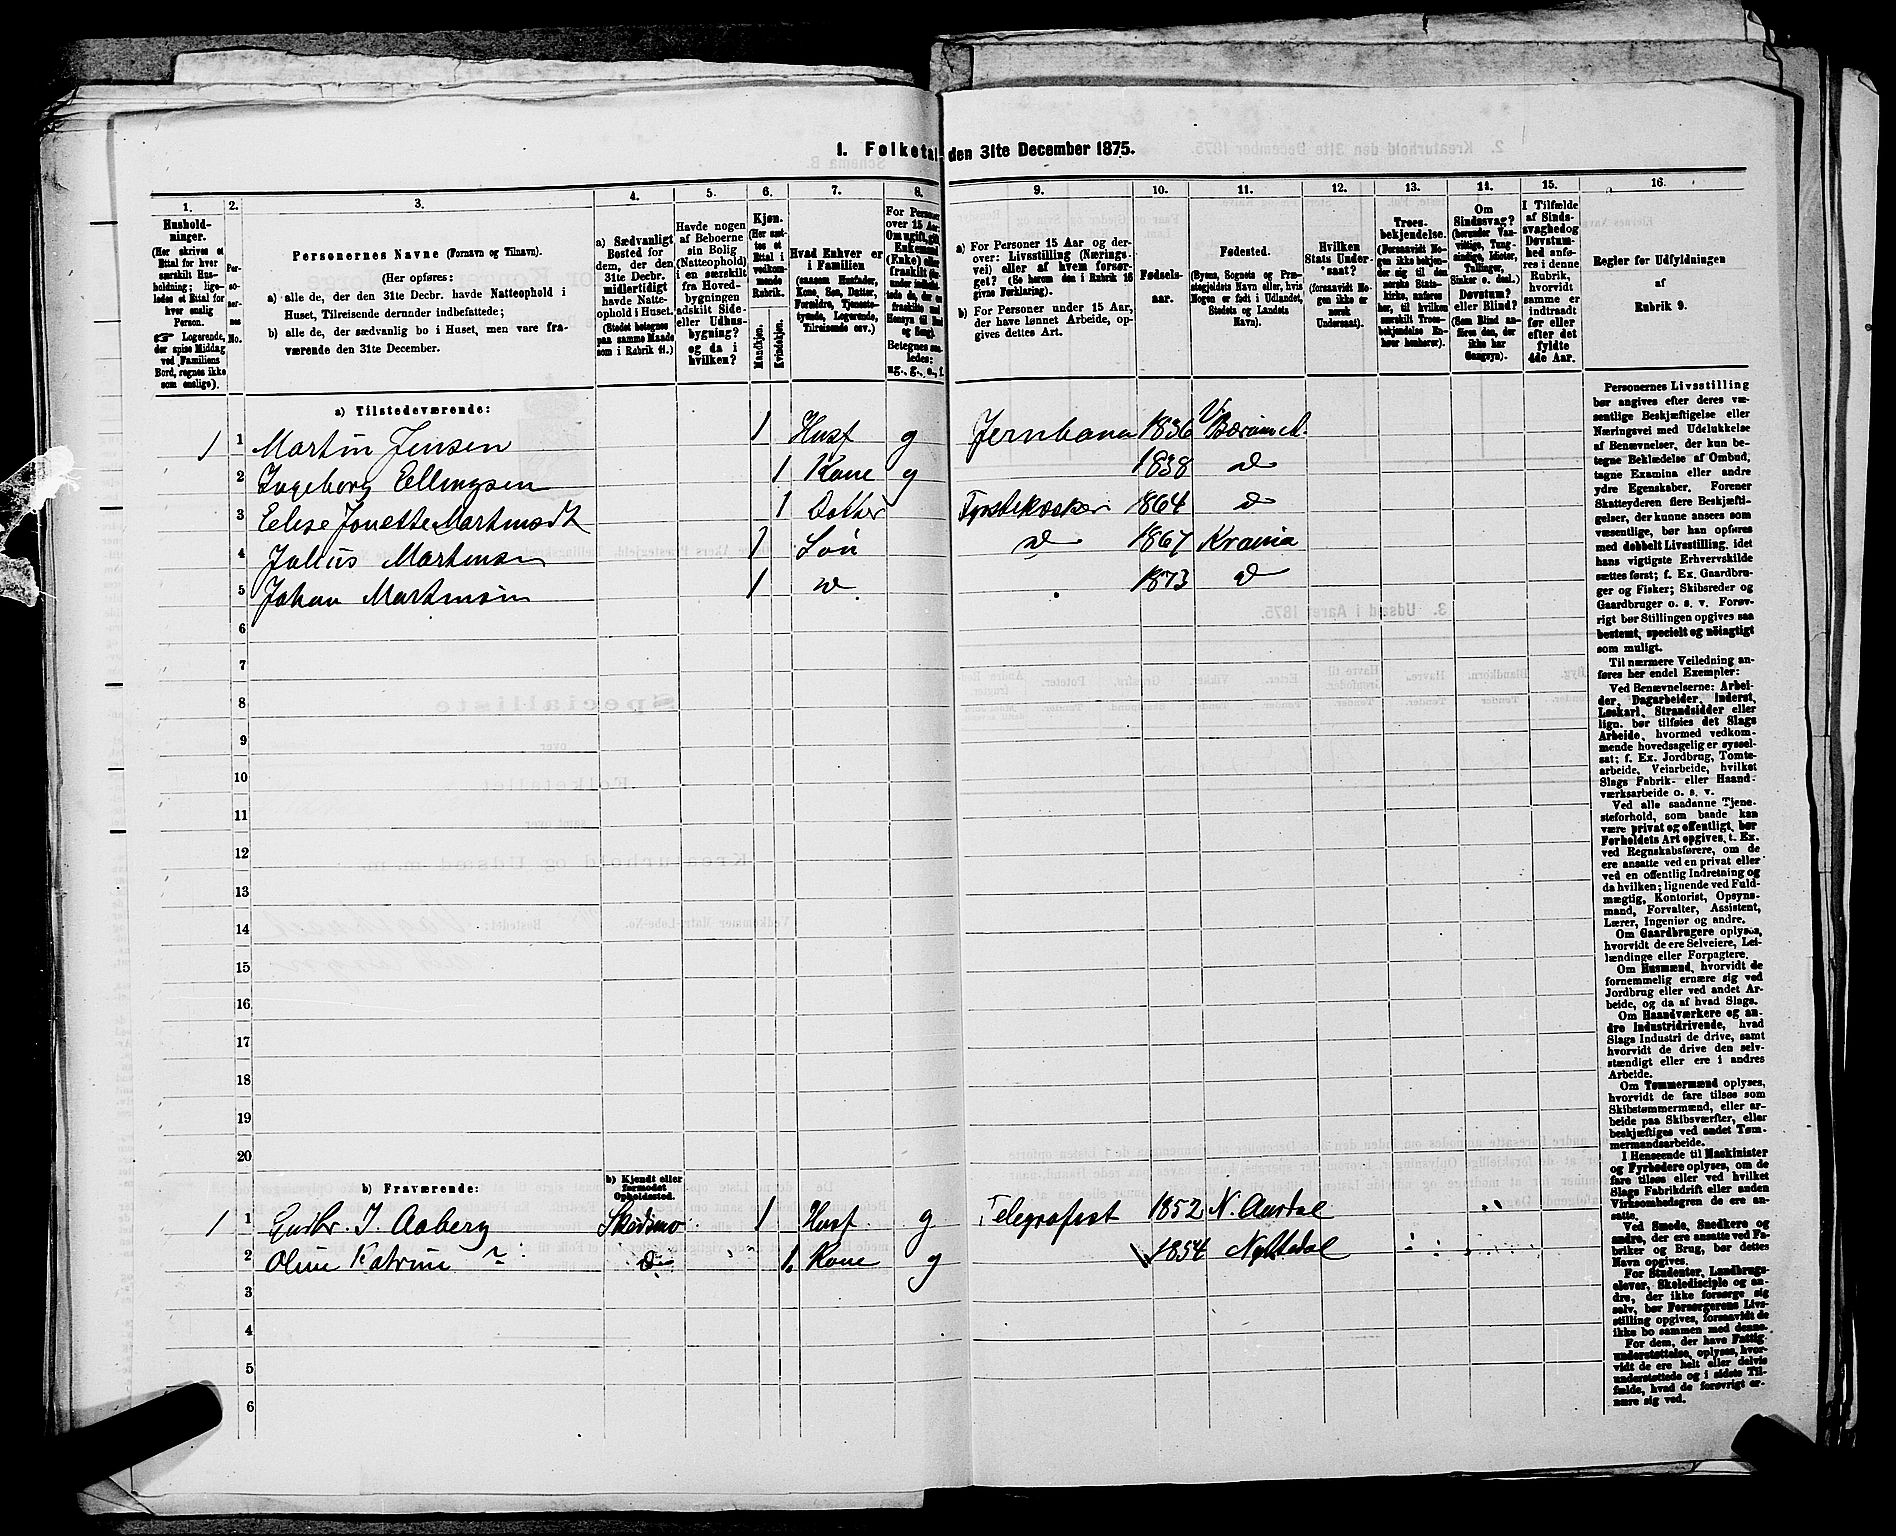 1. Folketal den 31te December 1875.
1.
Husholdninger.
(Her skrives et Ettal for hver særskilt Husholdning; ligeledes et Ettal for hver enslig Person.
Logerende, der spise Middag ved Familiens Bord, regnes ikke som enslige).
2.
Personernes No.
3.
Personernes Navne (Fornavn og Tilnavn).
(Her opføres:
a) alle de, der den 31te Decbr. havde Natteophold i Huset, Tilreisende derunder indbefattede;
b) alle de, der sædvanlig bo i Huset, men vare fraværende den 31te December.
4.
a) Sædvanligt Bosted for dem, der den 31te Decbr. midlertidigt havde Natteophold i Huset.
(Stedet betegnes paa samme Maade som i Rubrik 11.)
5.
Havde nogen af Beboerne sin Bolig (Natteophold) i en særskilt fra Hovedbygningen adskilt Side- eller Udhusbygning? og da i hvilken?
6.
Kjøn.
(Her sættes et Ettal i vedkommende Rubrik.
Mandkjøn.
Kvindekjøn.
7.
Hvad Enhver er i Familien
(saasom Husfader, Kone, Søn, Datter, Forældre, Tjenestetyende, Logerende, Tilreisende osv.)
8.
For Personer over 15 Aar:
ug., g., e., f.
9.
a) For Personer 15 Aar og derover: Livsstilling (Næringsvei) eller af hvem forsørget? (Se herom den i Rubrik 16 givne Forklaring).
b) For Personer under 15 Aar, der have lønnet Arbeide, opgives dettes Art.
10.
Fødselsaar.
11.
Fødested.
(Byens, Sognets og Præstegjeldets Navn eller, hvis Nogen er født i Udlandet, Stedets og Landets Navn).
12.
Hvilken Stats Undersaat?
(forsaavidt Nogen ikke er norsk Undersaat).
13.
Troesbekjendelse.
(Forsaavidt Nogen ikke bekjender sig til den norske Statskirke, anføres her, til hvilken særskilt Troesbekjendelse Enhver henhører).
14.
Om Sindssvag? (herunder Vanvittige, Tungsindige, Idioter, Tullinger, Sinker o. desl.) Døvstum? eller Blind? (Som Blind anføres den, der ikke har Gangsyn).
15.
I Tilfælde af Sindssvaghed og Døvstumhed anføres i denne Rubrik, hvorvidt samme er indtraadt før eller efter det fyldte 4de Aar.
16.
Regler for Udfyldningen
af
Rubrik 9.
a) Tilstedeværende:
1 1 Martin Jensen 1 Husf g Jernbane 1836 V Bærum A.
2 Ingeborg Ellingsen 1 Kone g 1838 do
3 Elise Jonette Martinsdt 1 Datter Fyrstikæsker 1864 do
4 Julius Martinsen 1 Søn do 1867 Krania
5 Johan Martinsen 1 do 1873 do
6
7
8
9
10
11
12
13
14
15
16
17
18
19
20
b) Fraværende:
b) Kjendt eller formodet Opholdssted.
1 1 Gudbr. I. Aaberg Skedsmo 1 Husf. g Telegrafist 1852 N. Aurdal
2 Oline Katrine do 1. Kone g 1854 Nyttedal
3
4
5
6
Personernes Livsstilling
bør angives efter deres væ-
sentlige Beskjæftigelse eller
Næringsvei med Udelukkelse
af Benævnelser, der kun be-
tegne Beklædelse af Ombud,
tagne Examina eller andre
ydre Egenskaber. Forener
Skatteyderen flere Beskjæfti-
gelser, der kunne ansees som
væsentlige, bør han opføres
med dobbelt Livsstilling, idet
hans vigtigste Erhvervskilde
sættes først; f. Ex. Gaardbru-
ger og Fisker; Skibsreder og
Gaardbruger o. s. v. Forøv-
rigt bør Stillingen opgives saa
bestemt, specielt og nöiagtigt
som muligt.
Til nærmere Veiledning an-
føres her endel Exempler:
Ved Benævnelserne: Arbei-
der, Dagarbeider, Inderst,
Løskarl, Strandsidder eller
lign. bør tilføies det Slags
Arbeide, hvormed vedkom-
mende hovedsagelig er syssel-
sat; f. Ex. Jordbrug, Tomte-
arbeide, Veiarbeide, hvilket
Slags Fabrik- eller Haand-
værksarbeide o. s. v.
Ved alle saadanne Tjene-
steforhold, som baade kan
være privat og offentligt, bør
Forholdets Art opgives, t. Ex.
ved Regnskabsførere, om de
ere ansatte ved en privat eller
ved en offentlig Indretning og
da hvilken; lignende ved Fuld-
mægtig, Kontorist, Opsyns-
mand, Forvalter, Assistent,
Lærer, Ingeniør og andre.
Om Gaardbrugere oplyses,
hvorvidt de ere Selveiere, Lei-
lændinge eller Forpagtere.
Om Husmænd, hvorvidt de
fornemmelig ernære sig ved
Jordbrug eller ved andet Ar-
beide, og da af hvad Slags.
Om Haandværkere og an-
dre Industridrivende, hvad
Slags Industri de drive, samt
hvorvidt de drive den selv-
stændigt eller ere i andres
Arbeide.
Om Tømmermænd oplyses,
hvorvidt de fare tilsøs som
Skibstømmermænd, eller ar-
beide paa Skibsværfter, eller
beskjæftiges ved andet Tøm-
mermandsarbeide.
I Henseende til Maskinister
og Fyrbødere oplyses, om de
fare tilsøs eller ved hvilket
Slags Fabrikdrift eller anden
Virksomhedsgren de ere an-
satte.
Ved Smede, Snedkere og
andre, der ere ansatte ved Fa-
briker og Brug, bør dettes
Navn opgives.
For Studenter, Landbrugs-
elever, Skoledisciple og an-
dre, der ikke forsørge sig
selv, bør Forsørgerens Livs-
stilling opgives, forsaavidt de
ikke bo sammen med denne.
For dem, der have Fattig-
understøttelse, oplyses, hvor-
vidt de ere helt eller delvis
understøttede og i sidste Til-
fælde, hvad de forøvrigt er-
nære sig ved.